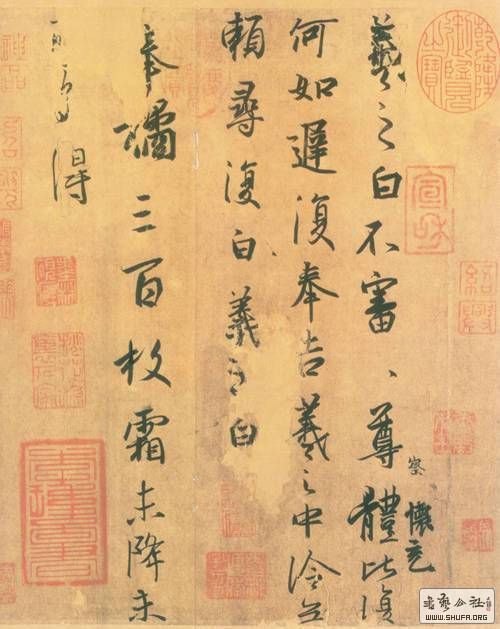 羲之白不審、尊體比復
察 懷充
何如遲復奉告羲之中冷無
賴尋復白羲之白
奉橘三百枚霜未降未
可多得
乾隆御覽之寶
宣和
紹興
書藝公社
WWW.SHUFA.ORG